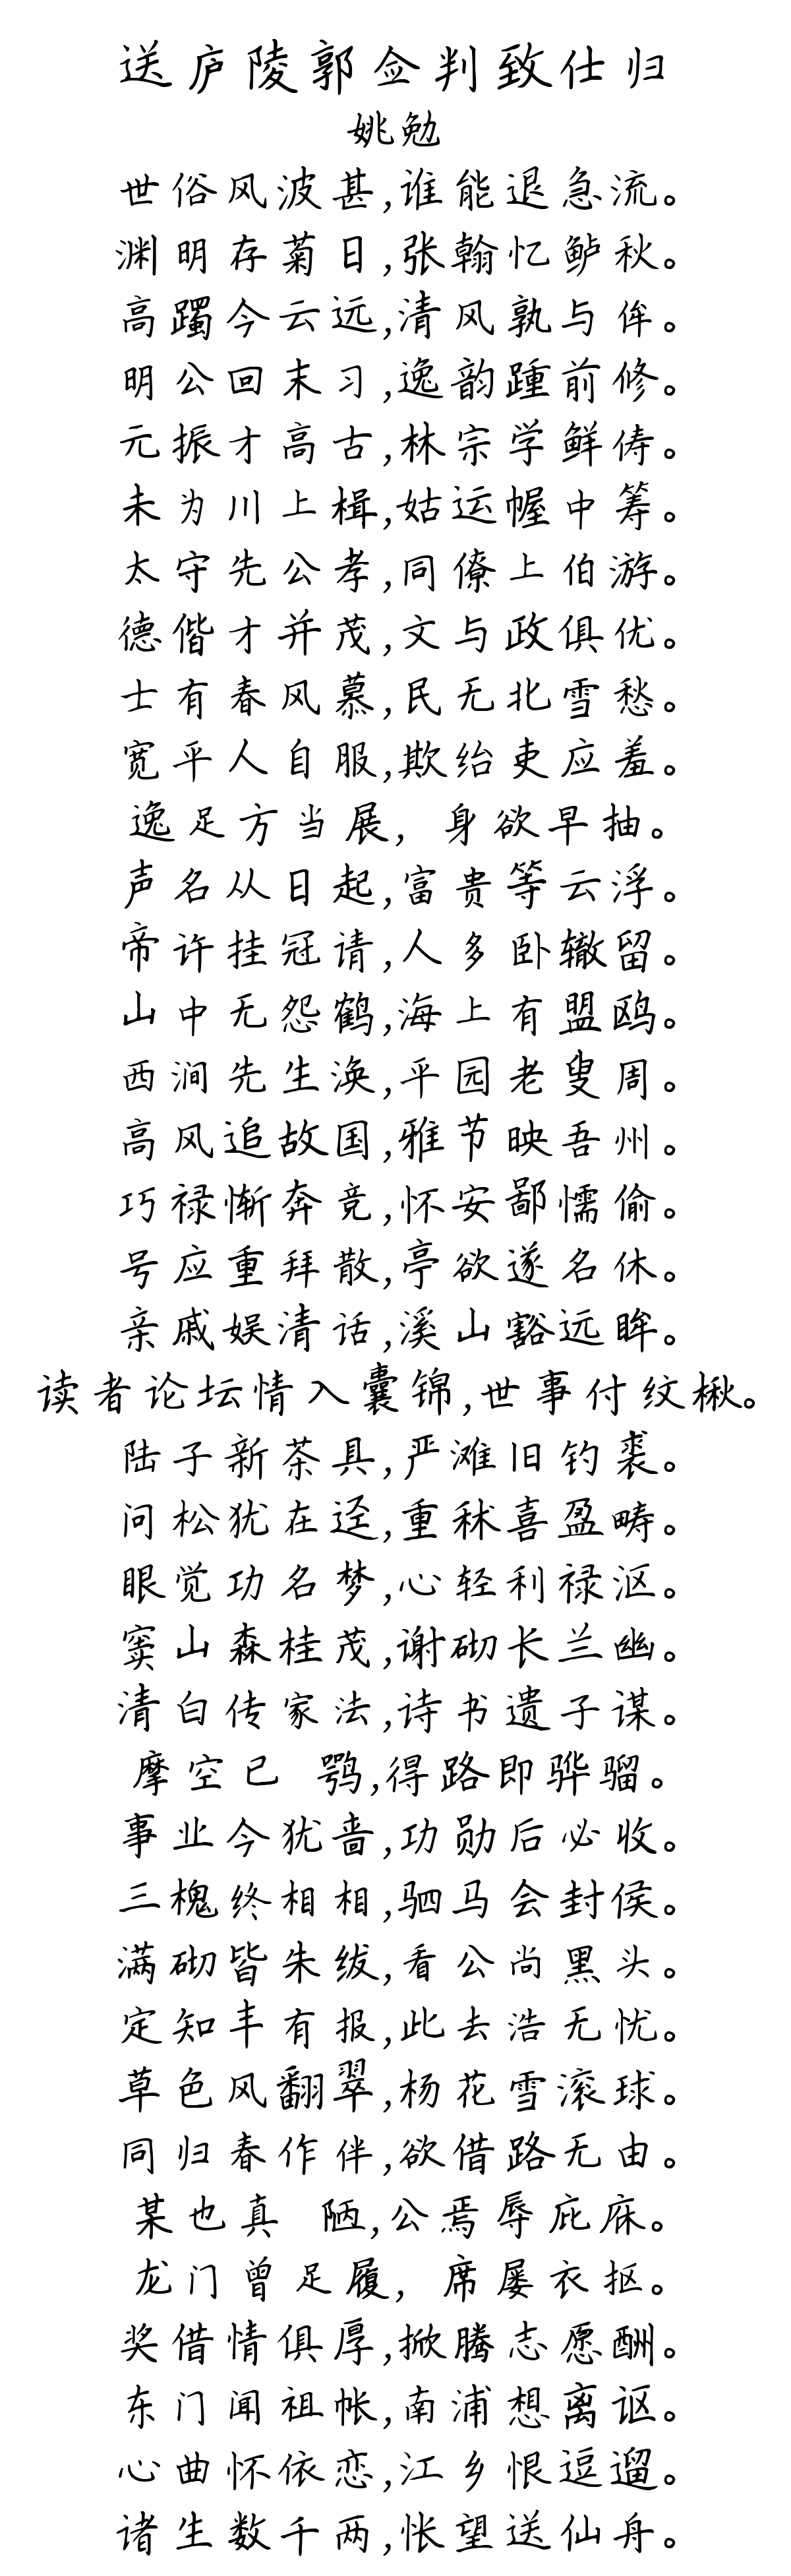 送庐陵郭佥判致仕归
姚勉
世俗风波甚,谁能退急流。
渊明存菊日,张翰忆鲈秋。
高躅今云远,清风孰与侔。
明公回末习,逸韵踵前修。
元振才高古,林宗学鲜俦。
未为川上楫,姑运幄中筹。
太守先公孝,同僚上伯游。
德偕才并茂,文与政俱优。
士有春风慕,民无北雪愁。
宽平人自服,欺绐吏应羞。
逸足方当展, 身欲早抽。
声名从日起,富贵等云浮。
帝许挂冠请,人多卧辙留。
山中无怨鹤,海上有盟鸥。
西涧先生涣,平园老叟周。
高风追故国,雅节映吾州。
巧禄惭奔竞,怀安鄙懦偷。
号应重拜散,亭欲遂名休。
亲戚娱清话,溪山豁远眸。
读者论坛情入囊锦,世事付纹楸。
陆子新茶具,严滩旧钓裘。
问松犹在迳,重秫喜盈畴。
眼觉功名梦,心轻利禄沤。
窦山森桂茂,谢砌长兰幽。
清白传家法,诗书遗子谋。
摩空已 鹗,得路即骅骝。
事业今犹啬,功勋后必收。
三槐终相相,驷马会封侯。
满砌皆朱绂,看公尚黑头。
定知丰有报,此去浩无忧。
草色风翻翠,杨花雪滚球。
同归春作伴,欲借路无由。
某也真 陋,公焉辱庇庥。
龙门曾足履, 席屡衣抠。
奖借情俱厚,掀腾志愿酬。
东门闻祖帐,南浦想离讴。
心曲怀依恋,江乡恨逗遛。
诸生数千两,怅望送仙舟。